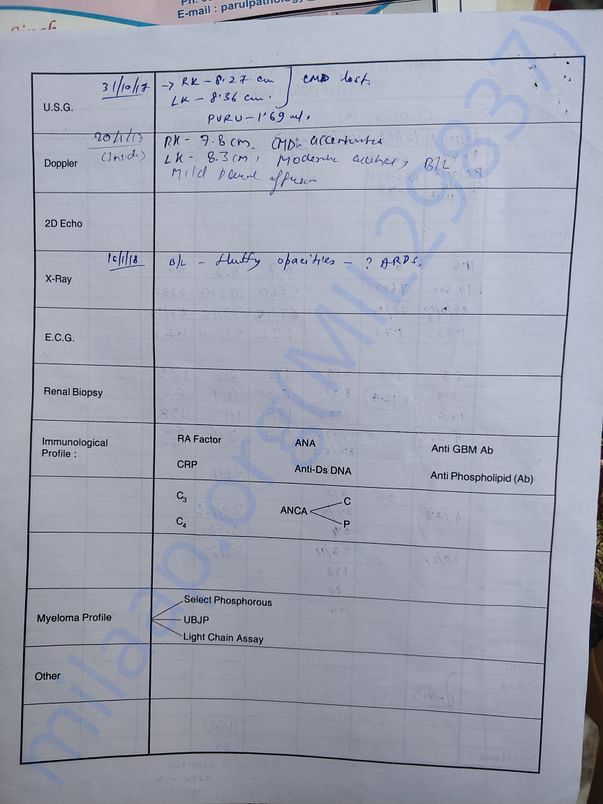 E-mail : parulpathology@
U.S.G.
31/10/17 → RK - 8.27 cm
LK - 8.36 cm.
CMD lost.
PVRU - 1.69 ml.
Doppler
RK - 7.8 cm. CMD- accentuated
LK - 8.3 cm, Moderate B/L
Mild effusion
2D Echo
X-Ray
16/1/18 B/L - fluffy opacities - ? ARDS.
E.C.G.
Renal Biopsy
Immunological Profile :
RA Factor ANA Anti GBM Ab
CRP Anti-Ds DNA Anti Phospholipid (Ab)
C3 ANCA C
C4 P
Myeloma Profile
Select Phosphorous
UBJP
Light Chain Assay
Other
milaap.org(MIL29837)